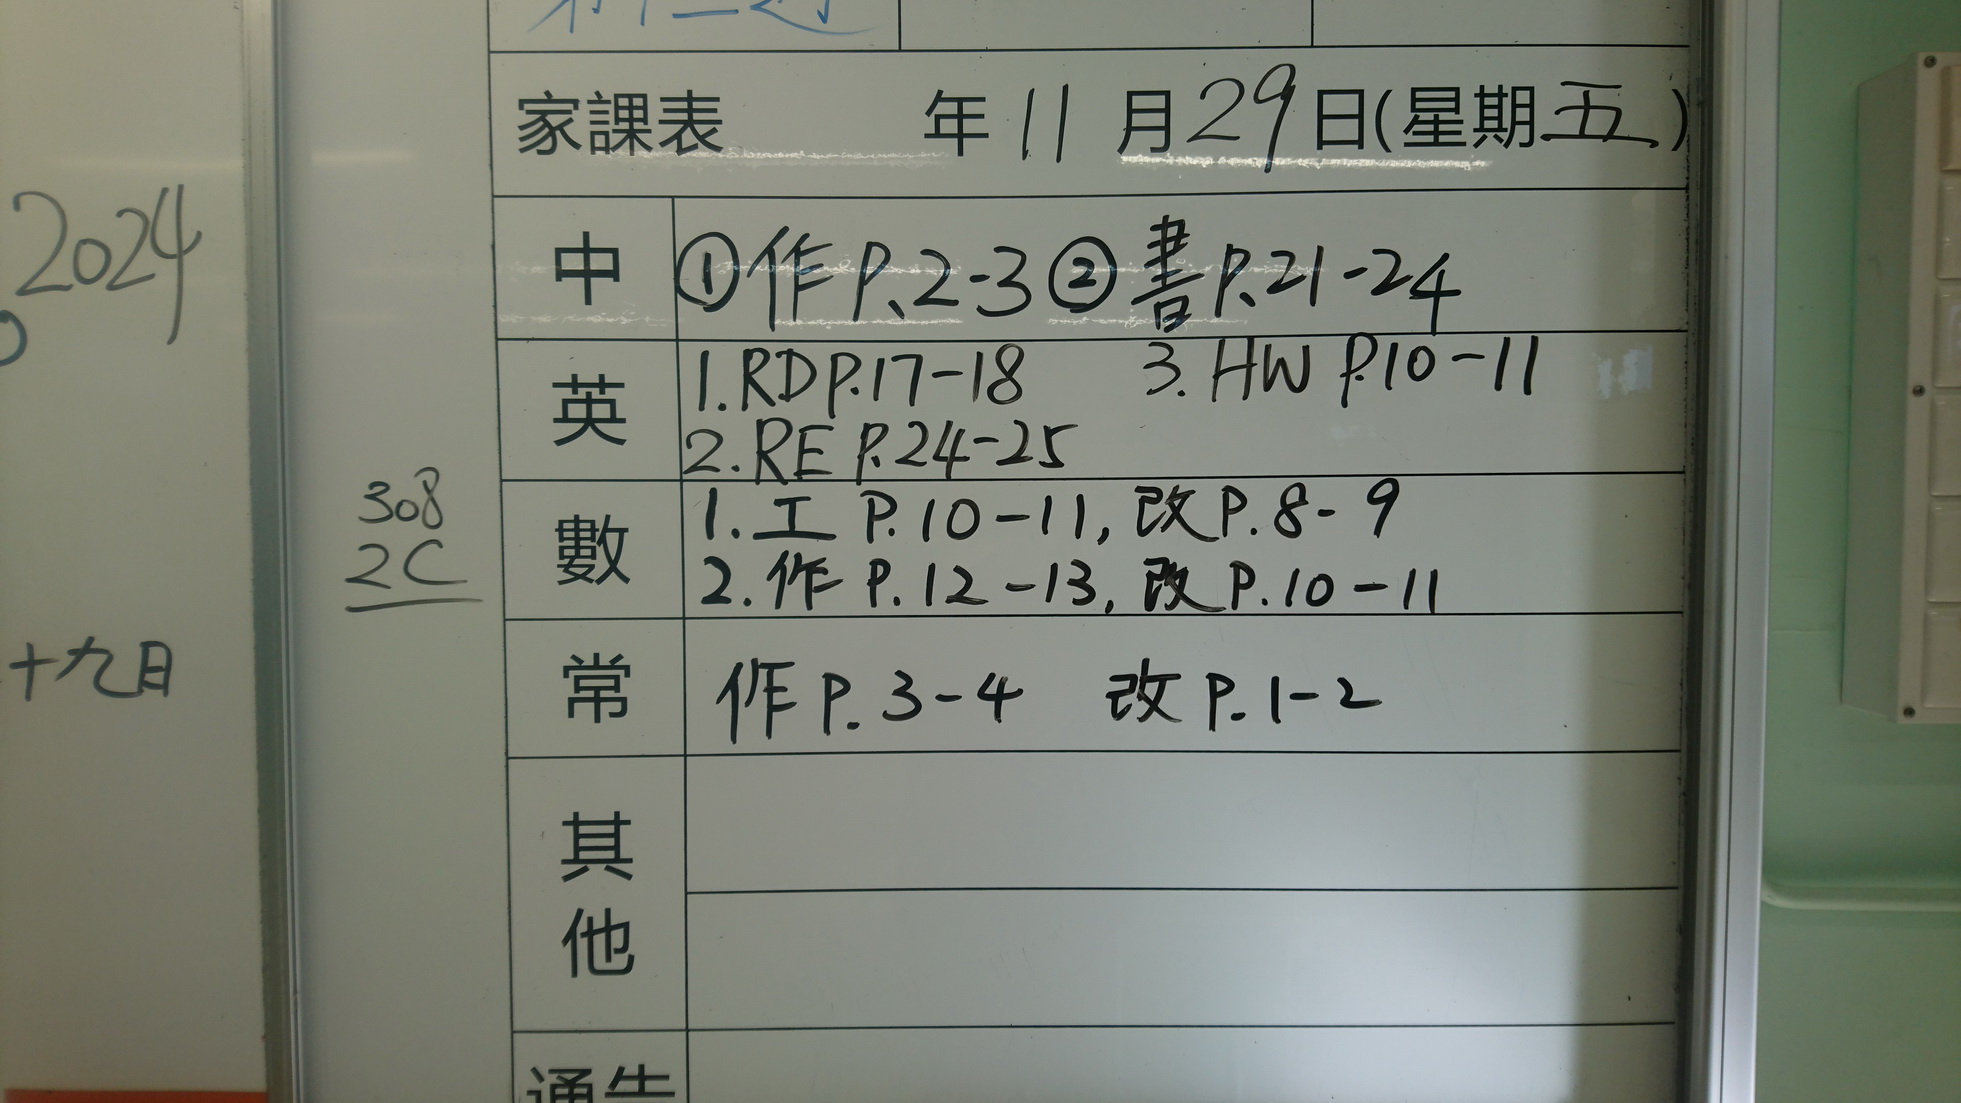 2024
十九日
308
2C
家課表 年11月29日(星期五)
中 ①作P.2-3 ②書P.21-24
英 1.RD P.17-18 3.HW P.10-11
2.RE P.24-25
數 1.工 P.10-11,改P.8-9
2.作 P.12-13,改P.10-11
常 作P.3-4 改P.1-2
其他
通告